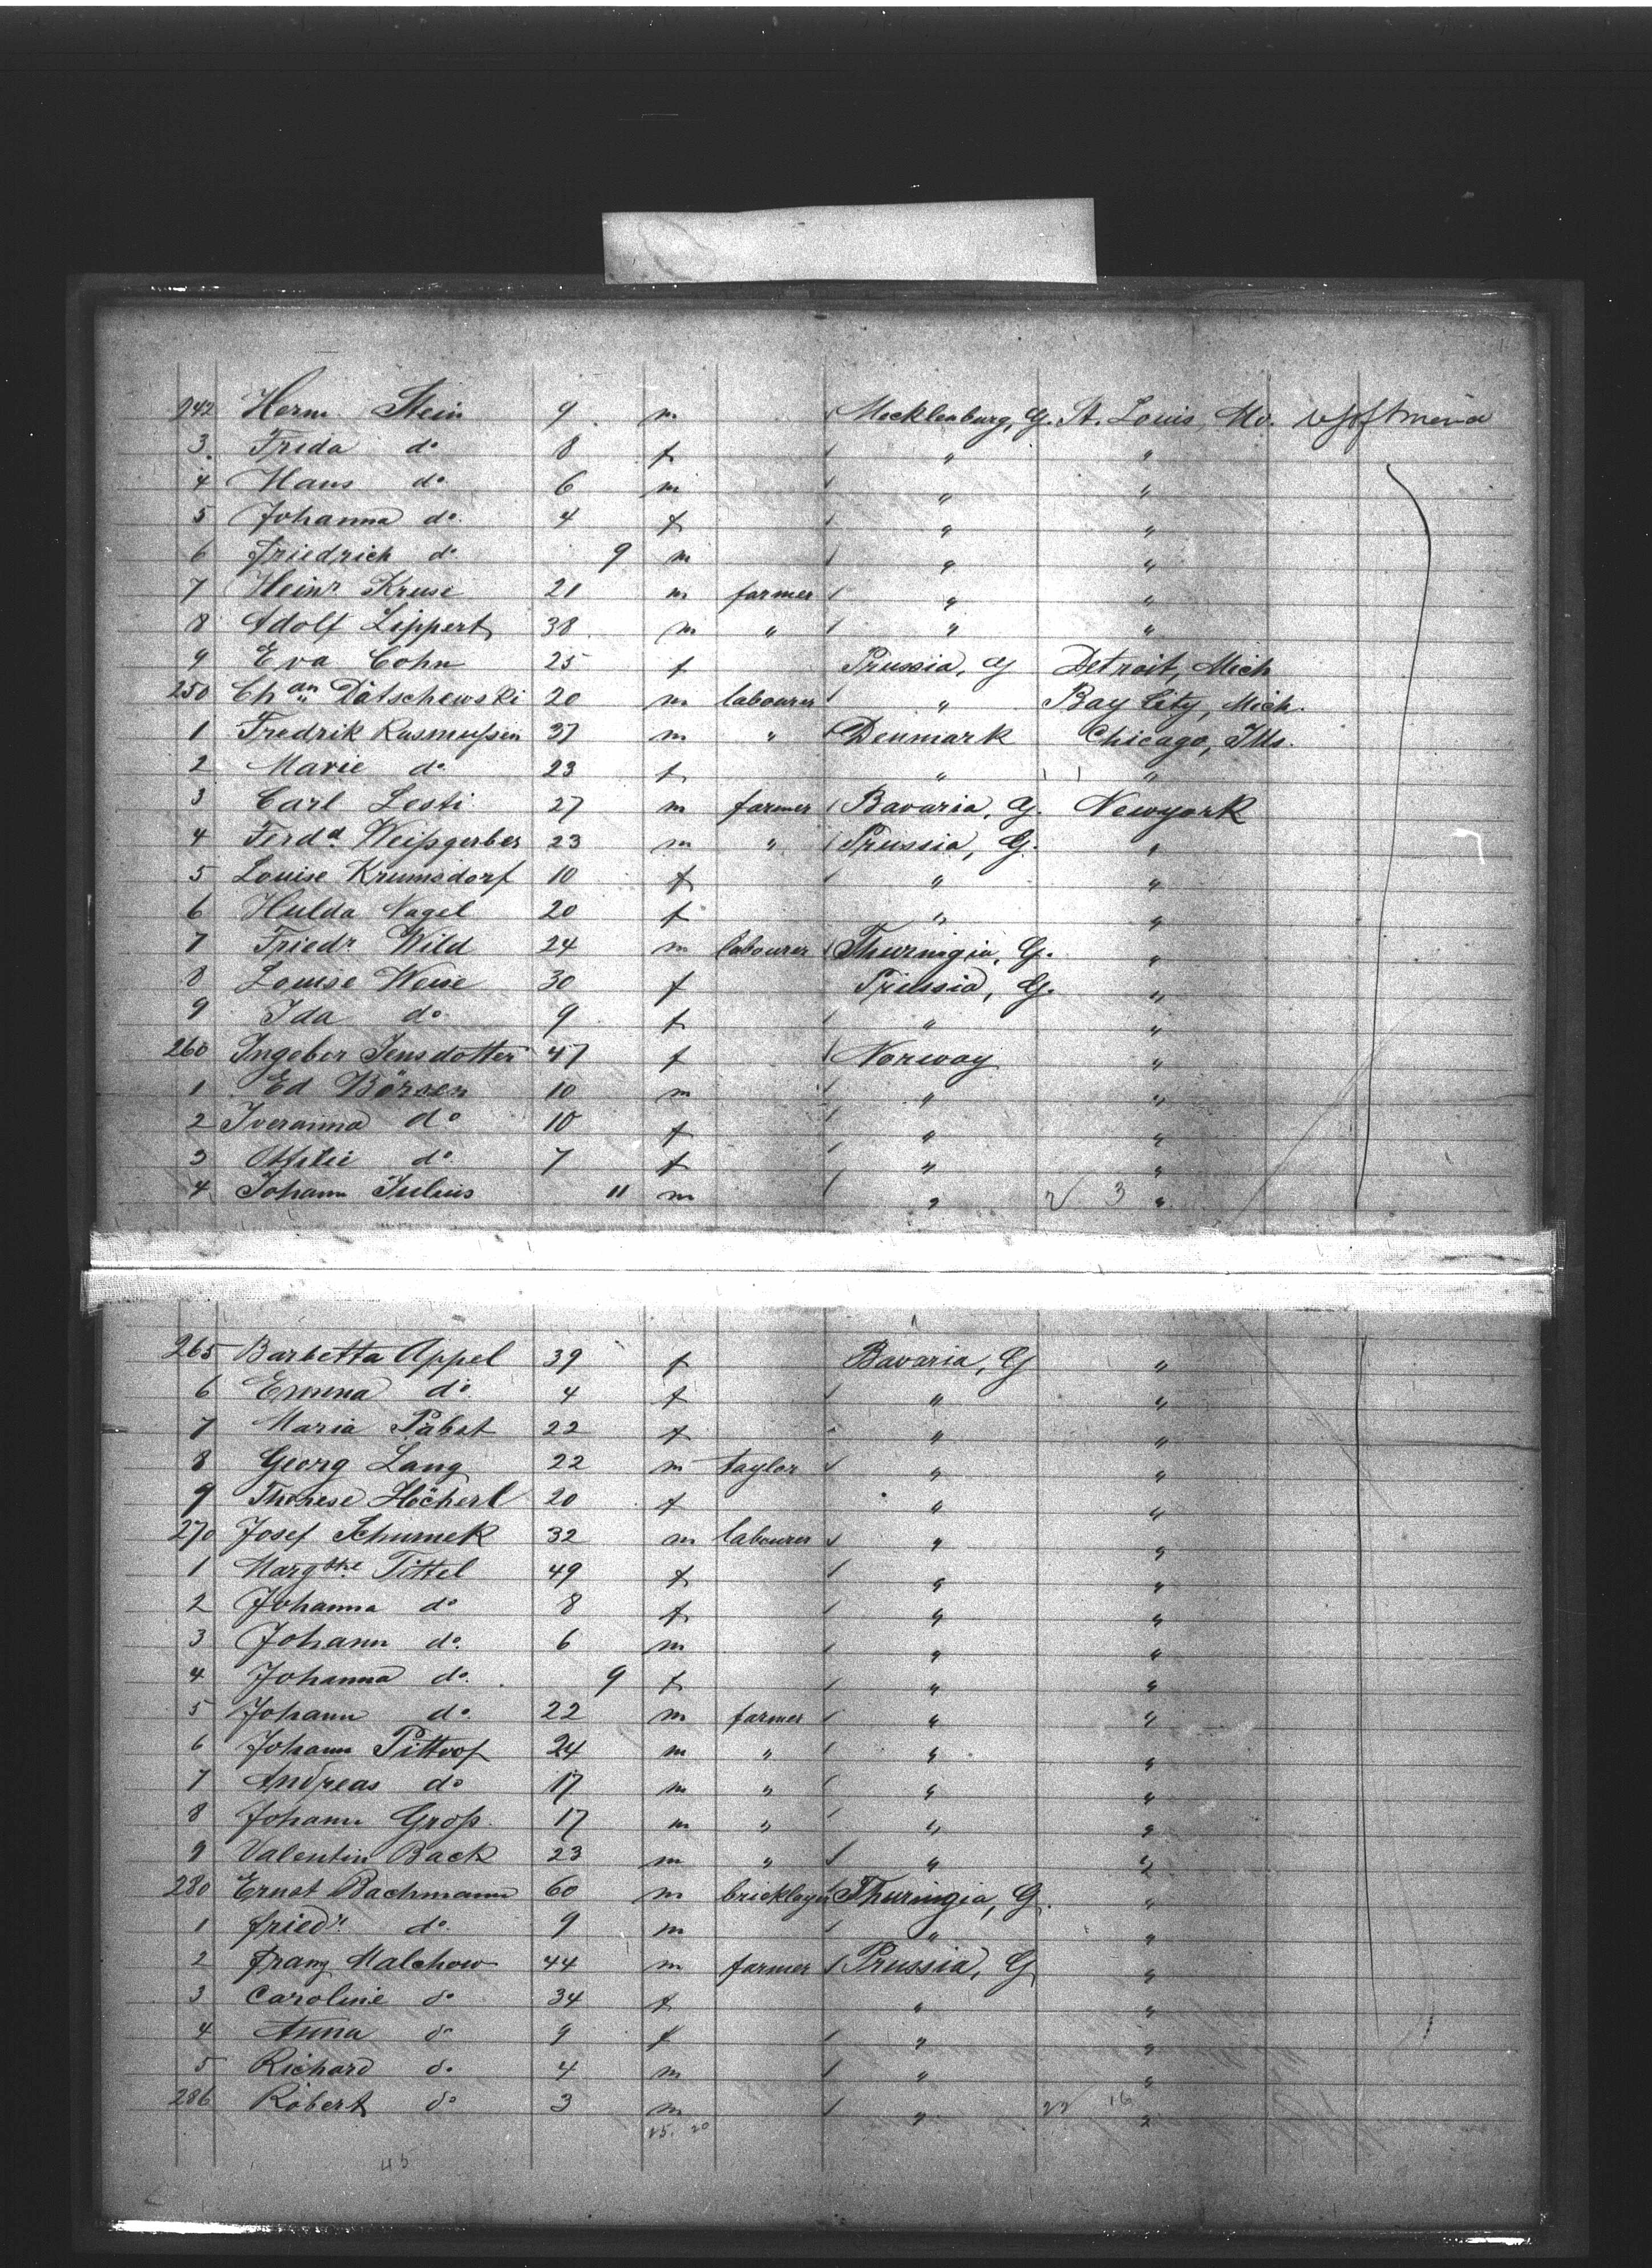 242 Herm. Stein 9 m Mecklenburg, G. St. Louis, Mo.
3. Frida do 8 f " "
4 Hans do 6 m " "
5 Johanna do. 4 f " "
6 Friedrich do 9 m " "
7 Heinr. Kruse 21 m farmer " "
8 Adolf Lippert 38 m " " "
9 Eva Cohn 25 f Prussia, G Detroit, Mich
250 Chan Datschewski 20 m labourer " Bay City, Mich.
1 Fredrik Rasmußen 37 m " Denmark Chicago, Ills.
2 Marie do 23 f " "
3 Carl Lesti 27 m farmer Bavaria, G. Newyork
4 Ferdd Weißgerber 23 m " Prussia, G. "
5 Louise Krumsdorf 10 f " "
6 Hulda Nagel 20 f " "
7 Friedr Wild 24 m labourer Thuringia, G. "
8 Louise Weise 30 f Prussia, G. "
9 Ida do 9 f " "
260 Ingebor Jensdotter 47 f Norway "
1 Ed Börsen 10 m " "
2 Iveranna do 10 f " "
3 do. 7 f " "
4 Johann Julius 11 m " 3 "
265 Barbetta Appel 39 f Bavaria, G "
6 Emma do 4 f " "
7 Maria Pabst 22 f " "
8 Georg Lang 22 m taylor " "
9 Therese Höcherl 20 f " "
270 Josef Schumek 32 m labourer " "
1 Margthe Tittel 49 f " "
2 Johanna do 8 f " "
3 Johann do. 6 m " "
4 Johanna do. 9 f " "
5 Johann do. 22 m farmer " "
6 Johann Pittrof 24 m " " "
7 Andreas do 17 m " " "
8 Johann Groß. 17 m " " "
9 Valentin Back 23 m " " "
280 Ernst Bachmann 60 m bricklayer Thuringia, G. "
1 Friedr. do. 9 m " "
2 Franz Malchow 44 m farmer Prussia, G "
3 Caroline do 34 f " "
4 Anna do 9 f " "
5 Richard do. 4 m " "
286 Robert do 3 m " 16 "
25. 20
45